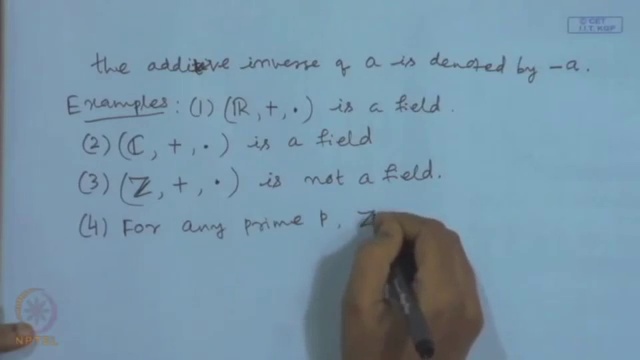 © CET
I.I.T. KGP
the additive inverse of a is denoted by -a.
Examples: (1) (ℝ, +, ·) is a field.
(2) (ℂ, +, ·) is a field
(3) (ℤ, +, ·) is not a field.
(4) For any prime p, ℤ
NPTEL